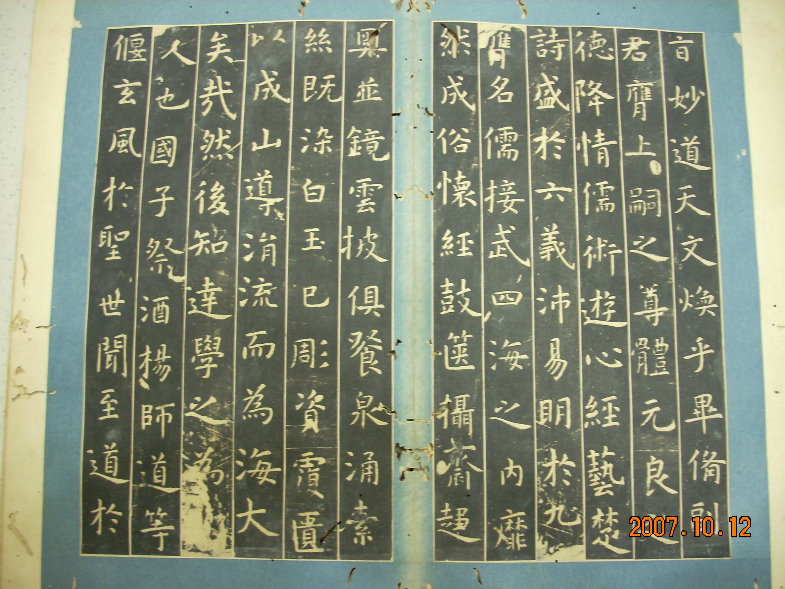 旨妙道天文煥乎畢備副
君膺上嗣之尊體元良之
德降情儒術遊心經藝楚
詩盛於六義沛易明於九
名儒接武四海之内靡
然成俗懷經鼓篋攝齋趨
奧並鏡雲披俱飡泉涌素
絲既染白玉已彫資覆匱
以成山導涓流而為海大
矣哉然後知達學之為
人也國子祭酒楊師道等
偃玄風於聖世聞至道於
2007.10.12